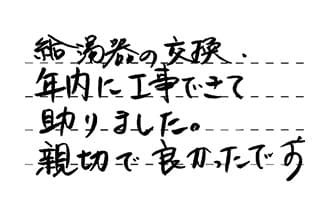 給湯器の交換、
年内に工事できて
助りました。
親切で良かったです